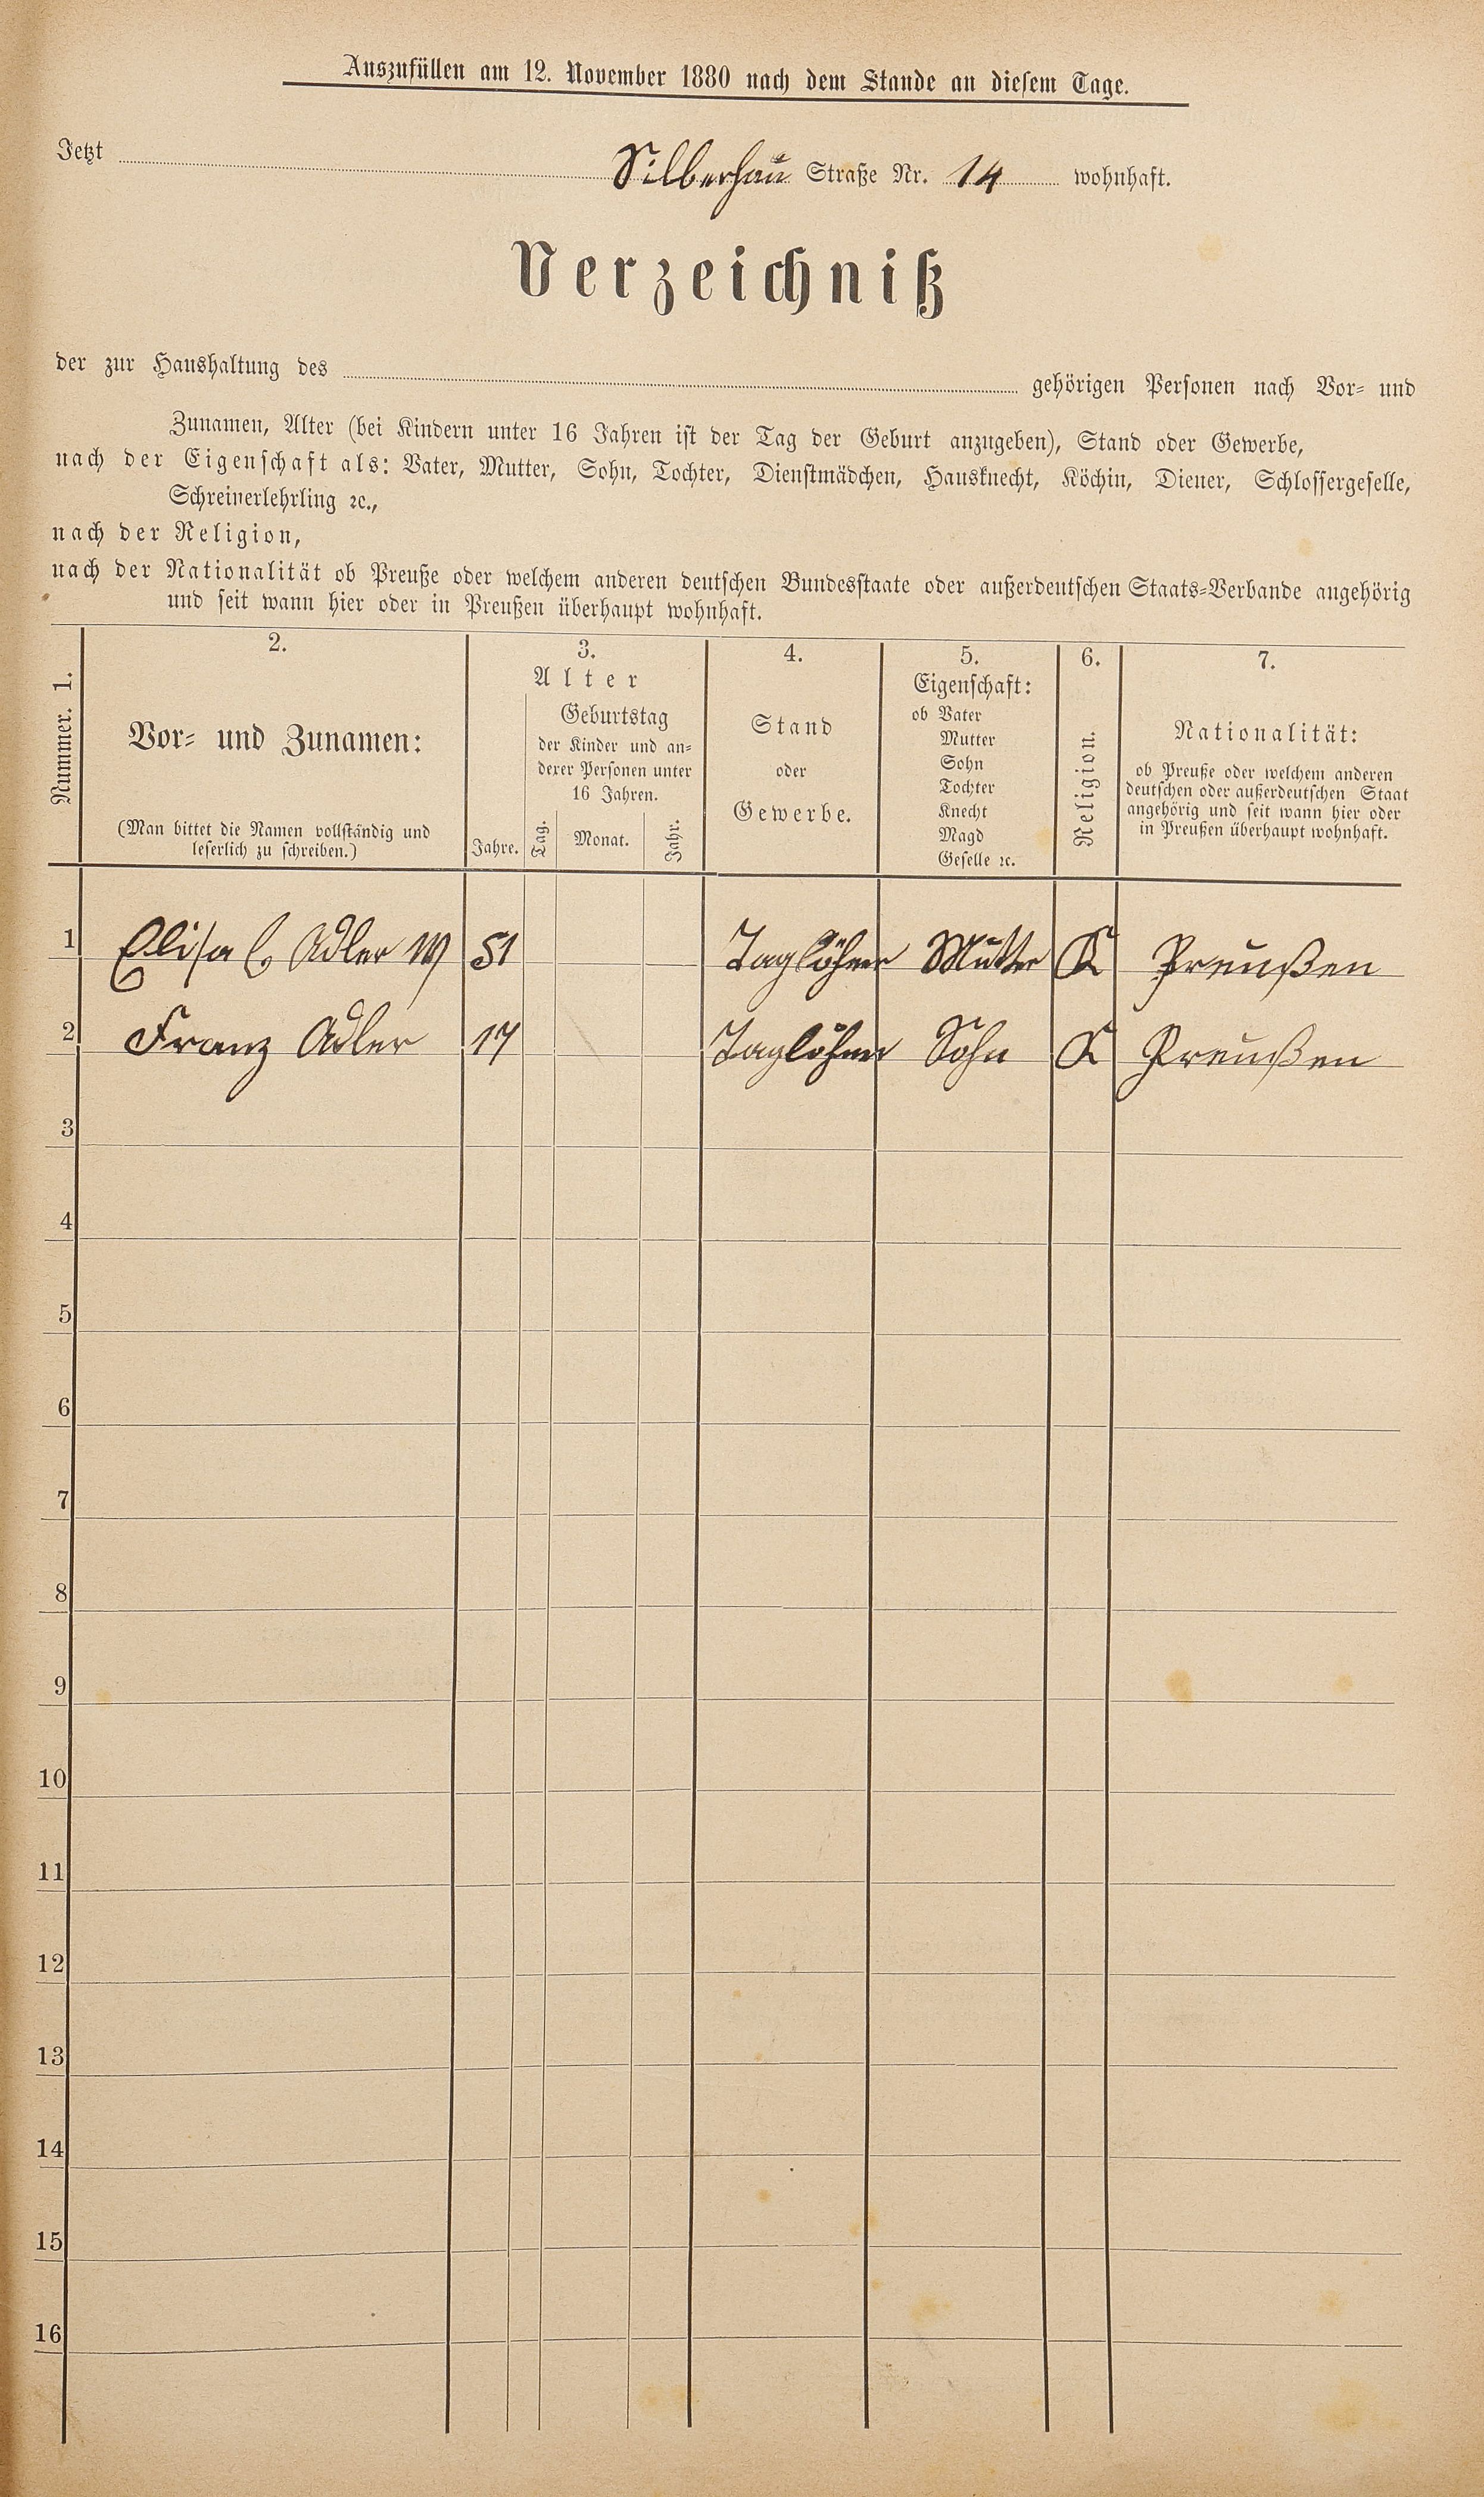 Auszufüllen am 12. November 1880 nach dem Stande an diesem Tage.
Jetzt Silberhau Straße Nr. 14 wohnhaft.
Verzeichniß
der zur Haushaltung des gehörigen Personen nach Vor- und
Zunamen, Alter (bei Kindern unter 16 Jahren ist der Tag der Geburt anzugeben), Stand oder Gewerbe,
nach der Eigenschaft als: Vater, Mutter, Sohn, Tochter, Dienstmädchen, Hausknecht, Köchin, Diener, Schlossergeselle,
Schreinerlehrling ꝛc.,
nach der Religion,
nach der Nationalität ob Preuße oder welchem anderen deutschen Bundesstaate oder außerdeutschen Staats-Verbande angehörig
und seit wann hier oder in Preußen überhaupt wohnhaft.
Nummer. 1.
2.
Vor- und Zunamen:
(Man bittet die Namen vollständig und
leserlich zu schreiben.)
3.
Alter
Geburtstag
der Kinder und an-
derer Personen unter
16 Jahren.
Jahre. Tag. Monat. Jahr.
4.
Stand
oder
Gewerbe.
5.
Eigenschaft:
ob Vater
Mutter
Sohn
Tochter
Knecht
Magd
Geselle ꝛc.
6.
Religion.
7.
Nationalität:
ob Preuße oder welchem anderen
deutschen oder außerdeutschen Staat
angehörig und seit wann hier oder
in Preußen überhaupt wohnhaft.
1 Elisa Adler W 51 Taglöhner Mutter K Preußen
2 Franz Adler 17 Taglöhner Sohn K Preußen
3
4
5
6
7
8
9
10
11
12
13
14
15
16